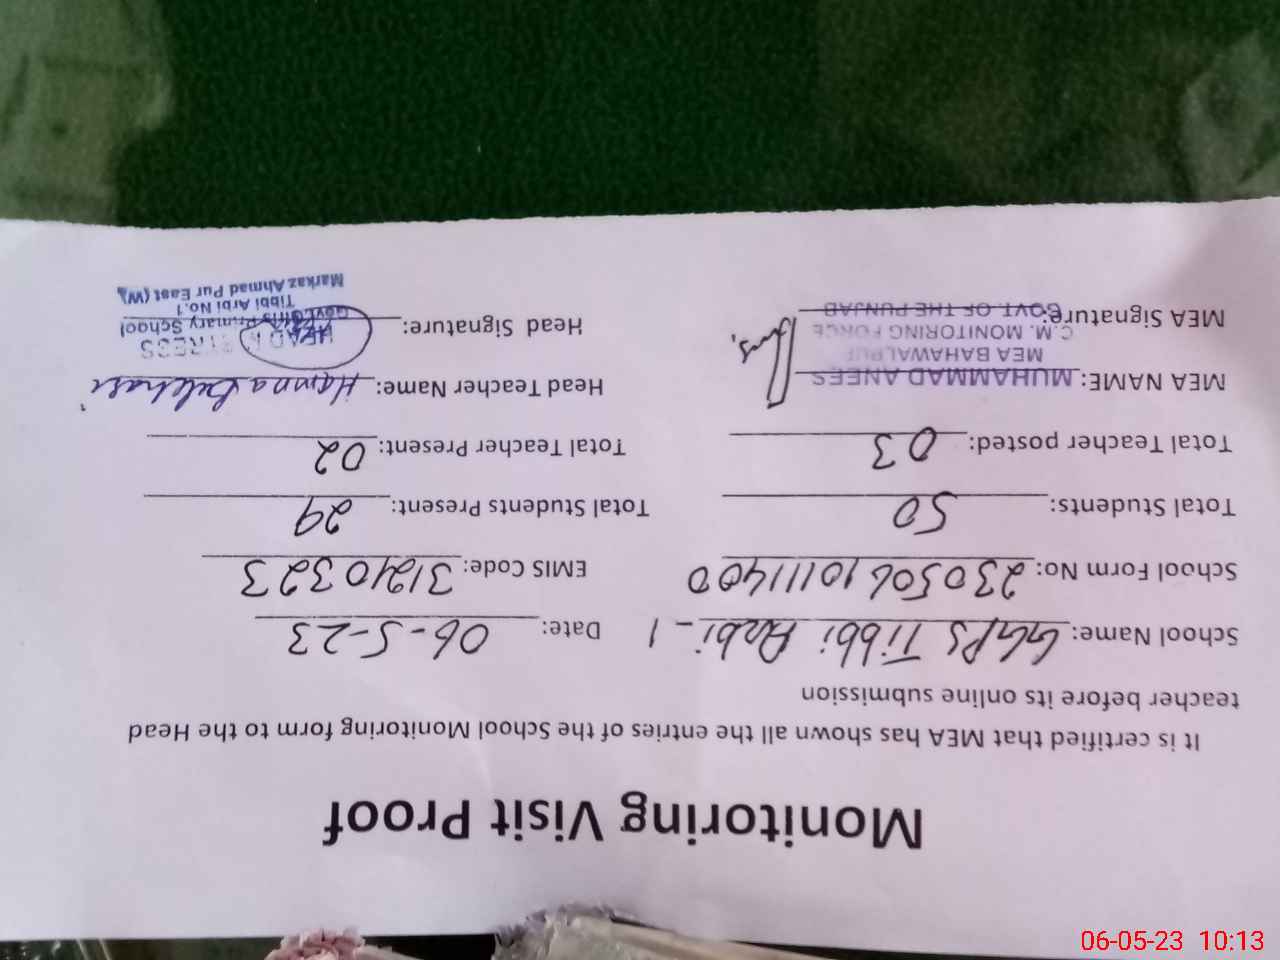 Monitoring Visit Proof
It is certified that MEA has shown all the entries of the School Monitoring form to the Head
teacher before its online submission
School Name: GGPS Tibbi Arbi-1 Date: 06-5-23
School Form No: 230506101111400 EMIS Code: 31240323
Total Students: 50 Total Students Present: 29
Total Teacher posted: 03 Total Teacher Present: 02
MEA NAME: MUHAMMAD ANEES Head Teacher Name: Hamna
MEA BAHAWALPUR
C.M. MONITORING FORCE
MEA Signature: GOVT. OF THE PUNJAB Head Signature:
HEAD MISTRESS
Govt. Girls Primary School
Tibbi Arbi No.1
Markaz Ahmad Pur East (W)
06-05-23 10:13